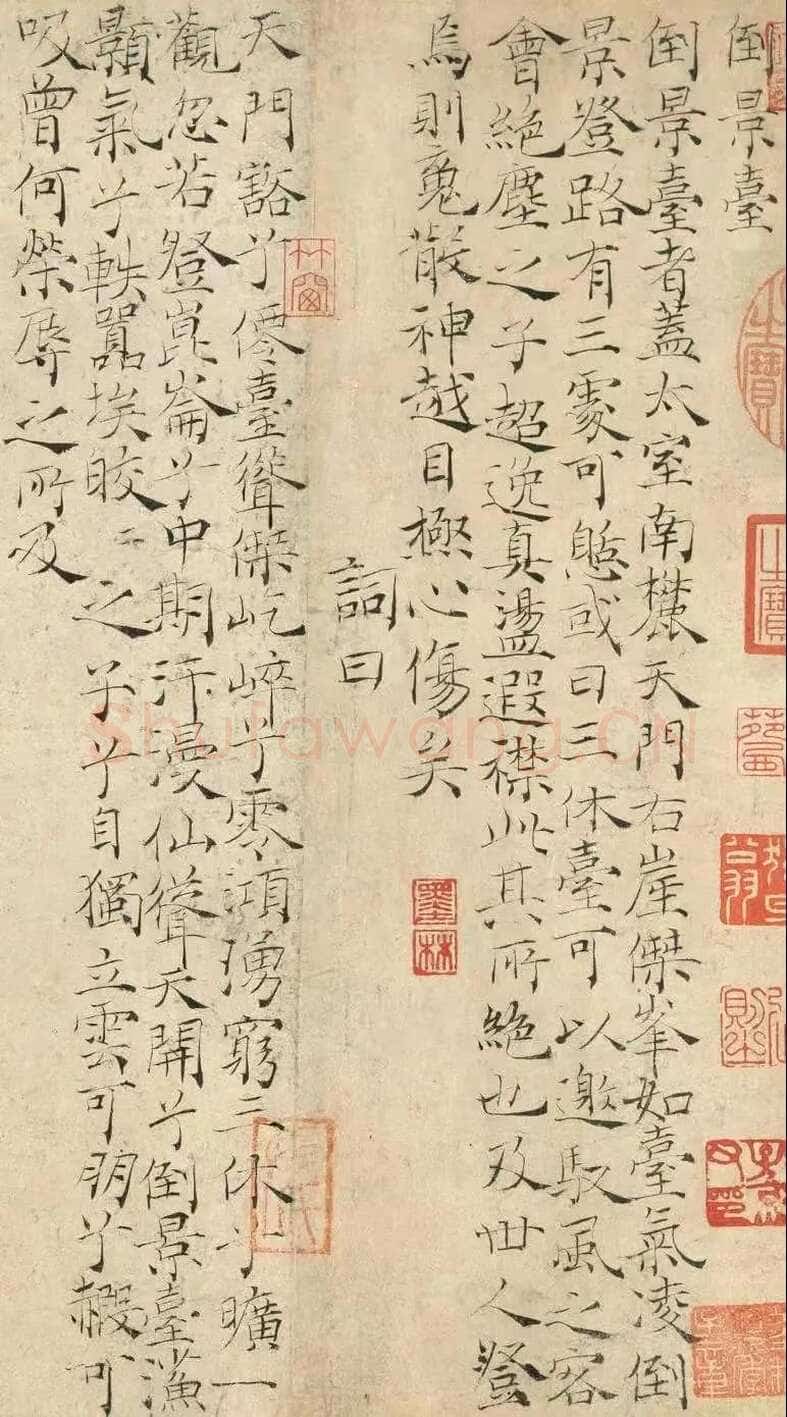 倒景臺
倒景臺者蓋太室南麓天門右崖傑峯如臺氣凌倒
景登路有三處可憩或曰三休臺可以邀馭風之客
會絕塵之子超逸真盪遐襟此其所絕也及世人登
焉則魂散神越目極心傷矣
詞曰
天門豁兮僊臺聳傑屹崒兮零澒湧窮三休兮曠一
觀忽若登崑崙兮中期汗漫仙聳天開兮倒景臺
顥氣兮軼囂埃皎皎之子兮自獨立雲可朋兮赮可
吸曾何榮辱之所及
墨林
Shufawang.CN